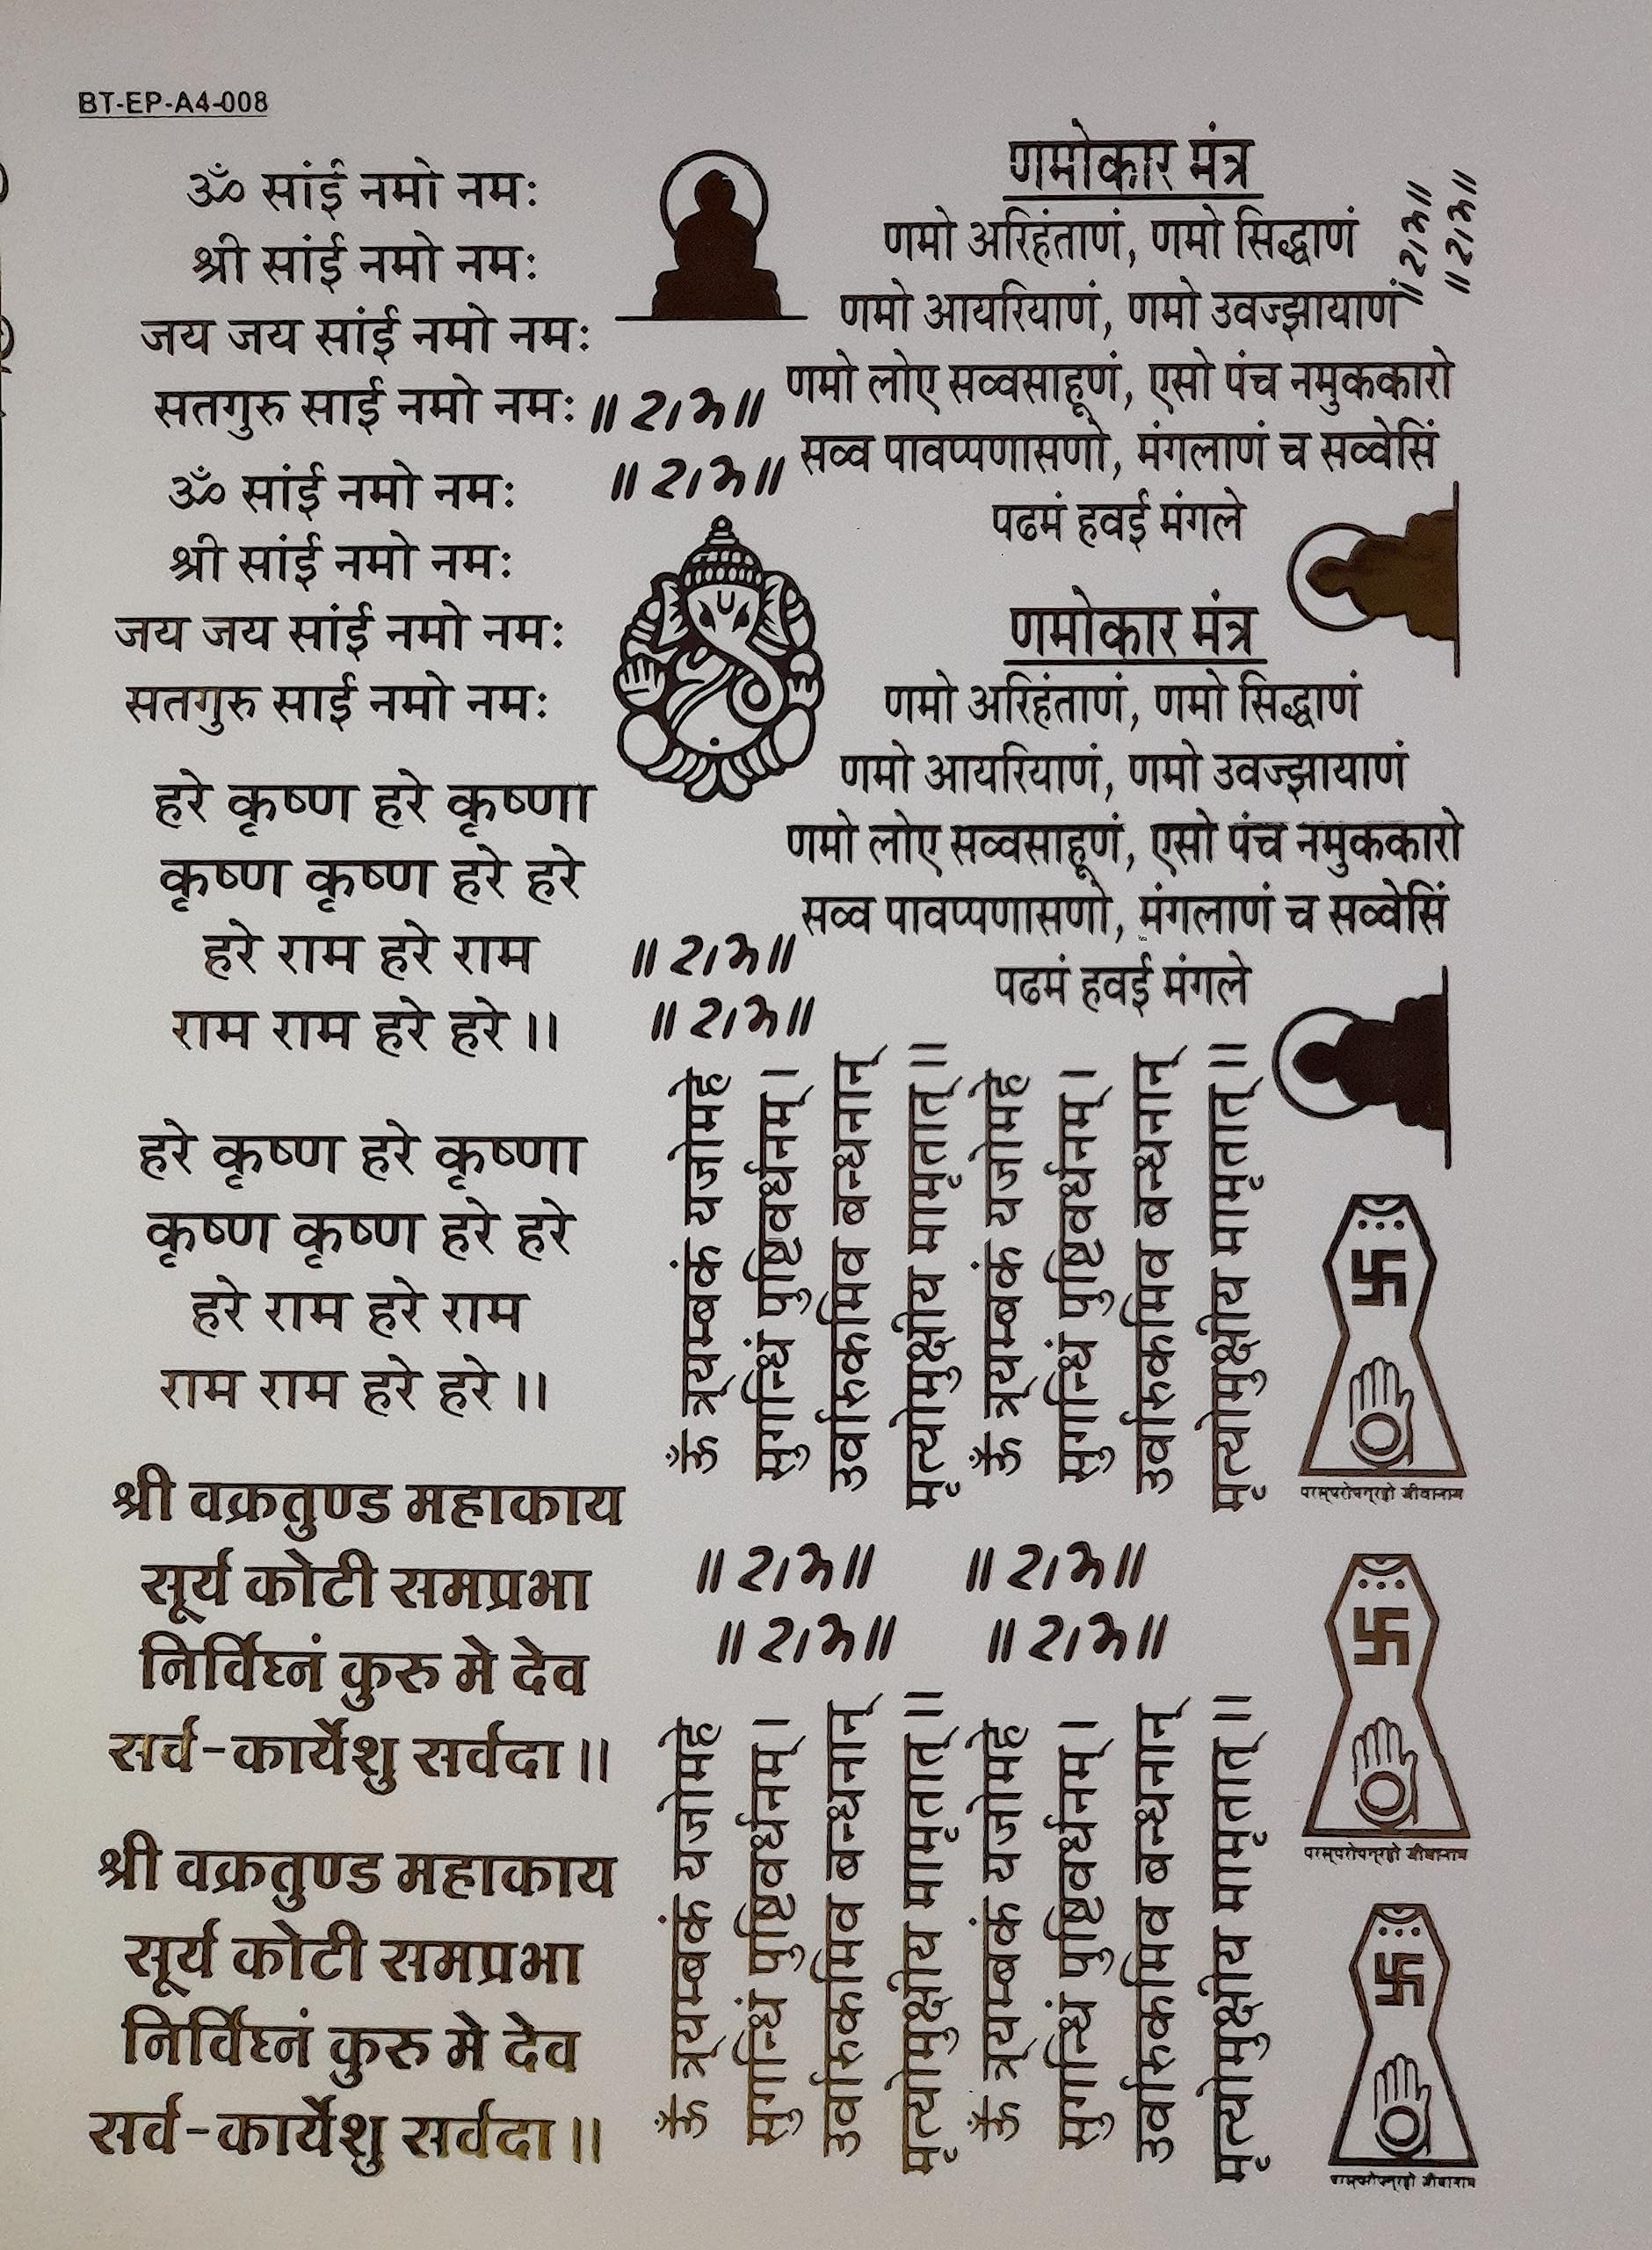 BT-EP-A4-008
ॐ सांई नमो नमः
श्री सांई नमो नमः
जय जय सांई नमो नमः
सतगुरु साई नमो नमः
ॐ सांई नमो नमः
श्री सांई नमो नमः
जय जय सांई नमो नमः
सतगुरु साई नमो नमः
हरे कृष्ण हरे कृष्णा
कृष्ण कृष्ण हरे हरे
हरे राम हरे राम
राम राम हरे हरे ।।
हरे कृष्ण हरे कृष्णा
कृष्ण कृष्ण हरे हरे
हरे राम हरे राम
राम राम हरे हरे ।।
श्री वक्रतुण्ड महाकाय
सूर्य कोटी समप्रभा
निर्विघ्नं कुरु मे देव
सर्व-कार्येशु सर्वदा ॥
श्री वक्रतुण्ड महाकाय
सूर्य कोटी समप्रभा
निर्विघ्नं कुरु मे देव
सर्व-कार्येशु सर्वदा ॥
॥ राम ॥
॥ राम ॥
॥ राम ॥
॥ राम ॥
णमोकार मंत्र
णमो अरिहंताणं, णमो सिद्धाणं
णमो आयरियाणं, णमो उवज्झायाणं
णमो लोए सव्वसाहूणं, एसो पंच नमुककारो
सव्व पावप्पणासणो, मंगलाणं च सव्वेसिं
पढमं हवई मंगले
॥ राम ॥
॥ राम ॥
णमोकार मंत्र
णमो अरिहंताणं, णमो सिद्धाणं
णमो आयरियाणं, णमो उवज्झायाणं
णमो लोए सव्वसाहूणं, एसो पंच नमुककारो
सव्व पावप्पणासणो, मंगलाणं च सव्वेसिं
पढमं हवई मंगले
ॐ त्र्यम्बकं यजामहे
सुगन्धिं पुष्टिवर्धनम् ।
उर्वारुकमिव बन्धनान्
मृत्योमुक्षीय मामृतात् ॥
ॐ त्र्यम्बकं यजामहे
सुगन्धिं पुष्टिवर्धनम् ।
उर्वारुकमिव बन्धनान्
मृत्योमुक्षीय मामृतात् ॥
॥ राम ॥ ॥ राम ॥
॥ राम ॥ ॥ राम ॥
ॐ त्र्यम्बकं यजामहे
सुगन्धिं पुष्टिवर्धनम् ।
उर्वारुकमिव बन्धनान्
मृत्योमुक्षीय मामृतात् ॥
ॐ त्र्यम्बकं यजामहे
सुगन्धिं पुष्टिवर्धनम् ।
उर्वारुकमिव बन्धनान्
मृत्योमुक्षीय मामृतात् ॥